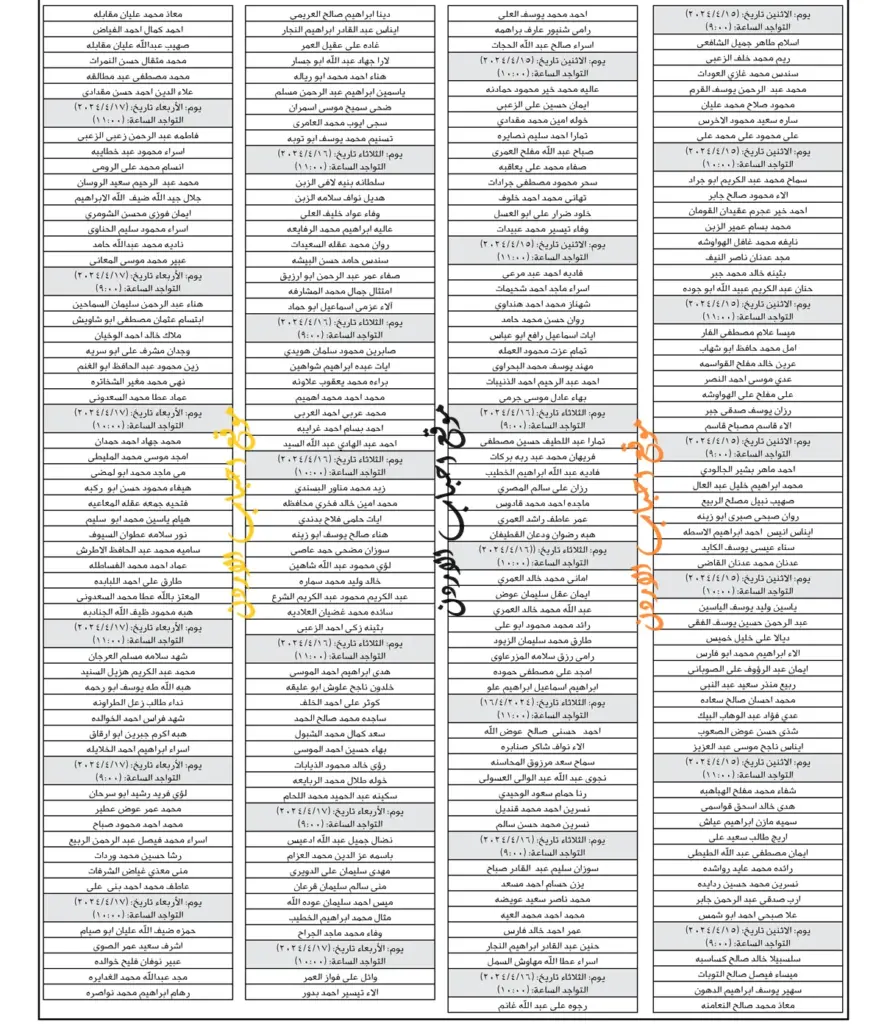 يوم: الاثنين تاريخ: (٢٠٢٤/٤/١٥)
التواجد الساعة: (٩:٠٠)
اسلام طاهر جميل الشافعي
ريم محمد خلف الزعبي
سندس محمد غازي العودات
محمد عبد الرحمن يوسف القرم
محمود صلاح محمد عليان
ساره سعيد محمود الاخرس
علي محمود علي محمد علي
يوم: الاثنين تاريخ: (٢٠٢٤/٤/١٥)
التواجد الساعة: (١٠:٠٠)
سماح محمد عبد الكريم ابو جراد
الاء محمود صالح جابر
احمد خير عجرم عقيدان القومان
محمد بسام عمير الزبن
نايفه محمد غافل الهواوشه
مجد عدنان ناصر النيف
بثينه خالد محمد جبر
حنان عبد الكريم عبيد الله ابو جوده
يوم: الاثنين تاريخ: (٢٠٢٤/٤/١٥)
التواجد الساعة: (١١:٠٠)
ميسا علام مصطفى الفار
امل محمد حافظ ابو شهاب
عرين خالد مفلح القواسمه
عدي موسى احمد النصر
علي مفلح علي الهواوشه
رزان يوسف صدقي جبر
الاء قاسم مصباح قاسم
يوم: الاثنين تاريخ: (٢٠٢٤/٤/١٥)
التواجد الساعة: (٩:٠٠)
احمد ماهر بشير الجالودي
محمد ابراهيم خليل عبد العال
صهيب نبيل مصلح الربيع
روان صبحي صبري ابو زينه
ايناس انيس احمد ابراهيم الاسطه
سناء عيسى يوسف الكايد
عدنان محمد عدنان القاضي
يوم: الاثنين تاريخ: (٢٠٢٤/٤/١٥)
التواجد الساعة: (١٠:٠٠)
ياسين وليد يوسف الياسين
عبد الرحمن حسين يوسف الفقي
ديالا علي خليل خميس
الاء ابراهيم محمد ابو فارس
ايمان عبد الرؤوف علي الصوباني
ربيع منذر سعيد عبد النبي
محمد احسان صالح سعاده
عدي فؤاد عبد الوهاب البيك
شذى حسن عوض الصعوب
ايناس ناجح موسى عبد العزيز
يوم: الاثنين تاريخ: (٢٠٢٤/٤/١٥)
التواجد الساعة: (١١:٠٠)
شفاء محمد مفلح الهباهبه
هدى خالد اسحق قواسمي
سميه مازن ابراهيم عياش
اريج طالب سعيد علي
ايمان مصطفى عبد الله الطيطي
رائده محمد عايد رواشده
نسرين محمد حسين ردايده
ارب صدقي عبد الرحمن جابر
علا صبحي احمد ابو شمس
يوم: الاثنين تاريخ: (٢٠٢٤/٤/١٥)
التواجد الساعة: (٩:٠٠)
سلسبيلا خالد صالح كساسبه
ميساء فيصل صالح التوبات
سهير يوسف ابراهيم الدهون
معاذ محمد صالح النعامنه
احمد محمد يوسف العلي
رامي شنيور عارف براهمه
اسراء صالح عبد الله الحجات
يوم: الاثنين تاريخ: (٢٠٢٤/٤/١٥)
التواجد الساعة: (١٠:٠٠)
عاليه محمد خير محمود حمادنه
ايمان حسين علي الزعبي
خوله امين محمد مقدادي
تمارا احمد سليم نصايره
صباح عبد الله مفلح العمري
صفاء محمد علي يعاقبه
سحر محمود مصطفى جرادات
تهاني محمد احمد خلوف
خلود ضرار علي ابو العسل
وفاء تيسير محمد عبيدات
يوم: الاثنين تاريخ: (٢٠٢٤/٤/١٥)
التواجد الساعة: (١١:٠٠)
فاديه احمد عبد مرعي
اسراء ماجد احمد شحيمات
شهناز محمد احمد هنداوي
روان حسن محمد حامد
ايات اسماعيل رافع ابو عباس
تمام عزت محمود العمله
مهند يوسف محمد البحراوي
احمد عبد الرحيم احمد الذنيبات
بهاء عادل موسى جرمي
يوم: الثلاثاء تاريخ: (٢٠٢٤/٤/١٦)
التواجد الساعة: (٩:٠٠)
تمارا عبد اللطيف حسين مصطفى
فريهان محمد عبد ربه بركات
فاديه عبد الله ابراهيم الخطيب
رزان علي سالم المصري
ماجده احمد محمد قادوس
عمر عاطف راشد العمري
هبه رضوان ودعان القطيفان
يوم: الثلاثاء تاريخ: ((٢٠٢٤/٤/١٦)
التواجد الساعة: (١٠:٠٠)
اماني محمد خالد العمري
ايمان عقل سليمان عوض
عبد الله محمد خالد العمري
رائد محمد محمود ابو علي
طارق محمد سليمان الزيود
رامي رزق سلامه المزرعاوي
امجد علي مصطفى حموده
ابراهيم اسماعيل ابراهيم علو
يوم: الثلاثاء تاريخ: (١٦/٤/٢٠٢٤)
التواجد الساعة: (١١:٠٠)
احمد حسني صالح عوض الله
الاء نواف شاكر صنابره
سماح سعد مرزوق المحاسنه
نجوى عبد الله عبد الوالي العسولي
رنا حمام سعود الوحيدي
نسرين احمد محمد قنديل
نسرين محمد حسن سالم
يوم: الثلاثاء تاريخ: (٢٠٢٤/٤/١٦)
التواجد الساعة: (٩:٠٠)
سوزان سليم عبد القادر صباح
يزن حسام احمد مسعد
محمد ناصر سعيد عويضه
محمد احمد محمد العيه
عمر احمد خالد فارس
حنين عبد القادر ابراهيم النجار
اسراء عطا الله مهاوش السمل
يوم: الثلاثاء تاريخ: (٢٠٢٤/٤/١٦)
التواجد الساعة: (١٠:٠٠)
رجوه علي عبد الله غانم
دينا ابراهيم صالح العريمي
ايناس عبد القادر ابراهيم النجار
غاده علي عقيل العمر
لارا جهاد عبد الله ابو جسار
هناء احمد محمد ابو رياله
ياسمين ابراهيم عبد الرحمن مسلم
ضحى سميح موسى اسمران
سجى ايوب محمد العامري
تسنيم محمد يوسف ابو توبه
يوم: الثلاثاء تاريخ: (٢٠٢٤/٤/١٦)
التواجد الساعة: (١١:٠٠)
سلطانه بنيه لافي الزبن
هديل نواف سلامه الزبن
وفاء عواد خليف العلي
عاليه ابراهيم محمد الرفايعه
روان محمد عقله السعيدات
سندس حامد حسن البيشه
صفاء عمر عبد الرحمن ابو ارزيق
امتثال جمال محمد المشارفه
آلاء عزمي اسماعيل ابو حماد
يوم: الثلاثاء تاريخ: (٢٠٢٤/٤/١٦)
التواجد الساعة: (٩:٠٠)
صابرين محمود سلمان هويدي
ايات عبده ابراهيم شواهين
براءه محمد يعقوب علاونه
محمد احمد محمد اهميم
محمد عربي احمد العربي
احمد بسام احمد غرايبه
احمد عبد الهادي عبد الله السيد
يوم: الثلاثاء تاريخ: (٢٠٢٤/٤/١٦)
التواجد الساعة: (١٠:٠٠)
زيد محمد مناور البسندي
محمد امين خالد فخري محافظه
ايات حلمي فلاح بدندي
هناء صالح يوسف ابو زينه
سوزان مضحي حمد عاصي
لؤي محمود عبد الله شاهين
خالد وليد محمد سماره
عبد الكريم محمود عبد الكريم الشرع
سائده محمد غضبان العلاديه
بثينه زكي احمد الزعبي
يوم: الثلاثاء تاريخ: (٢٠٢٤/٤/١٦)
التواجد الساعة: (١١:٠٠)
هدى ابراهيم احمد الموسى
خلدون ناجح علوش ابو عليقه
كوثر علي احمد الخلف
ساجده محمد صالح الحمد
سعد كمال محمد الشبول
بهاء حسين احمد الموسى
رؤى خالد محمود الذيابات
خوله طلال محمد الربايعه
سكينه عبد الحميد محمد اللحام
يوم: الأربعاء تاريخ: (٢٠٢٤/٤/١٧)
التواجد الساعة: (٩:٠٠)
نضال جميل عبد الله ادعيس
باسمه عز الدين محمد العزام
مهدي سليمان علي الدويري
منى سالم سليمان قرعان
ميس احمد سليمان عوده الله
مثال محمد ابراهيم الخطيب
وفاء محمد ماجد الجراح
يوم: الأربعاء تاريخ: (٢٠٢٤/٤/١٧)
التواجد الساعة: (١٠:٠٠)
وائل علي فواز العمر
الاء تيسير احمد بدور
معاذ محمد عليان مقابله
احمد كمال احمد الفياض
صهيب عبدالله عليان مقابله
محمد مثقال حسن النمرات
محمد مصطفى عبد مطالقه
علاء الدين احمد حسن مقدادي
يوم: الأربعاء تاريخ: (٢٠٢٤/٤/١٧)
التواجد الساعة: (١١:٠٠)
فاطمه عبد الرحمن زعبي الزعبي
اسراء محمود عبد خطايبه
انسام محمد علي الرومي
محمد عبد الرحيم سعيد الروسان
جلال جيد الله ضيف الله الابراهيم
ايمان فوزي محسن الشومري
اسراء محمود سليم الحناوي
ناديه محمد عبدالله حامد
عبير محمد موسى المعاني
يوم: الأربعاء تاريخ: (٢٠٢٤/٤/١٧)
التواجد الساعة: (٩:٠٠)
هناء عبد الرحمن سليمان السماحين
ابتسام عثمان مصطفى ابو شاويش
ملاك خالد احمد الوخيان
وجدان مشرف علي ابو سريه
زين محمود عبد الحافظ ابو الغنم
نهى محمد مغير الشخاتره
عماد عطا محمد السعدوني
يوم: الأربعاء تاريخ: (٢٠٢٤/٤/١٧)
التواجد الساعة: (١٠:٠٠)
محمد جهاد احمد حمدان
امجد موسى محمد المليطي
مي ماجد محمد ابو لمضي
هيفاء محمود حسن ابو ركبه
فتحيه جمعه عقله المعاعيه
هيام ياسين محمد ابو سليم
نور سلامه عطوان السيوف
ساميه محمد عبد الحافظ الاطرش
عماد احمد محمد الفساطله
طارق علي احمد اللبابده
المعتز بالله عطا محمد السعدوني
هبه محمود ظيف الله الجنادبه
يوم: الأربعاء تاريخ: (٢٠٢٤/٤/١٧)
التواجد الساعة: (١١:٠٠)
شهد سلامه مسلم العرجان
محمد عبد الكريم هزيل السنيد
هبه الله طه يوسف ابو رحمه
نداء طالب زعل الطراونه
شهد فراس احمد الخوالده
هبه اكرم جبرين ابو ارقاق
اسراء ابراهيم احمد الخلايله
يوم: الأربعاء تاريخ: (٢٠٢٤/٤/١٧)
التواجد الساعة: (٩:٠٠)
لؤي فريد رشيد ابو سرحان
محمد عمر عوض عطير
محمد احمد محمود صباح
اسراء محمد فيصل عبد الرحمن الربيع
رشا حسين محمد وردات
منى معذي غياض الشرفات
عاطف محمد احمد بني علي
يوم: الأربعاء تاريخ: (٢٠٢٤/٤/١٧)
التواجد الساعة: (١٠:٠٠)
حمزه ضيف الله عليان ابو صيام
اشرف سعيد عمر الصوي
عبير نوفان فليح خوالده
مجد عبدالله محمد الغدايره
رهام ابراهيم محمد نواصره
موقع احباب الاردن
موقع احباب الاردن
موقع احباب الاردن